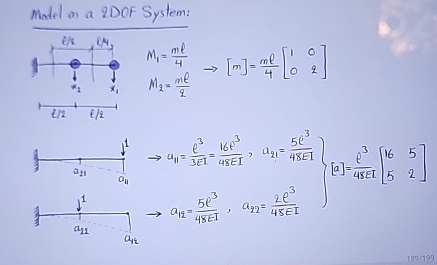 Model as a 2DOF System:
ℓ/2 ℓ/4
x₂ x₁
ℓ/2 ℓ/2
M₁ = mℓ/4
M₂ = mℓ/2
→ [m] = mℓ/4 [1 0; 0 2]
1
a₂₁ a₁₁
→ a₁₁ = ℓ³/3EI = 16ℓ³/48EI , a₂₁ = 5ℓ³/48EI
1
a₂₂ a₁₂
→ a₁₂ = 5ℓ³/48EI , a₂₂ = 2ℓ³/48EI
[a] = ℓ³/48EI [16 5; 5 2]
189/199